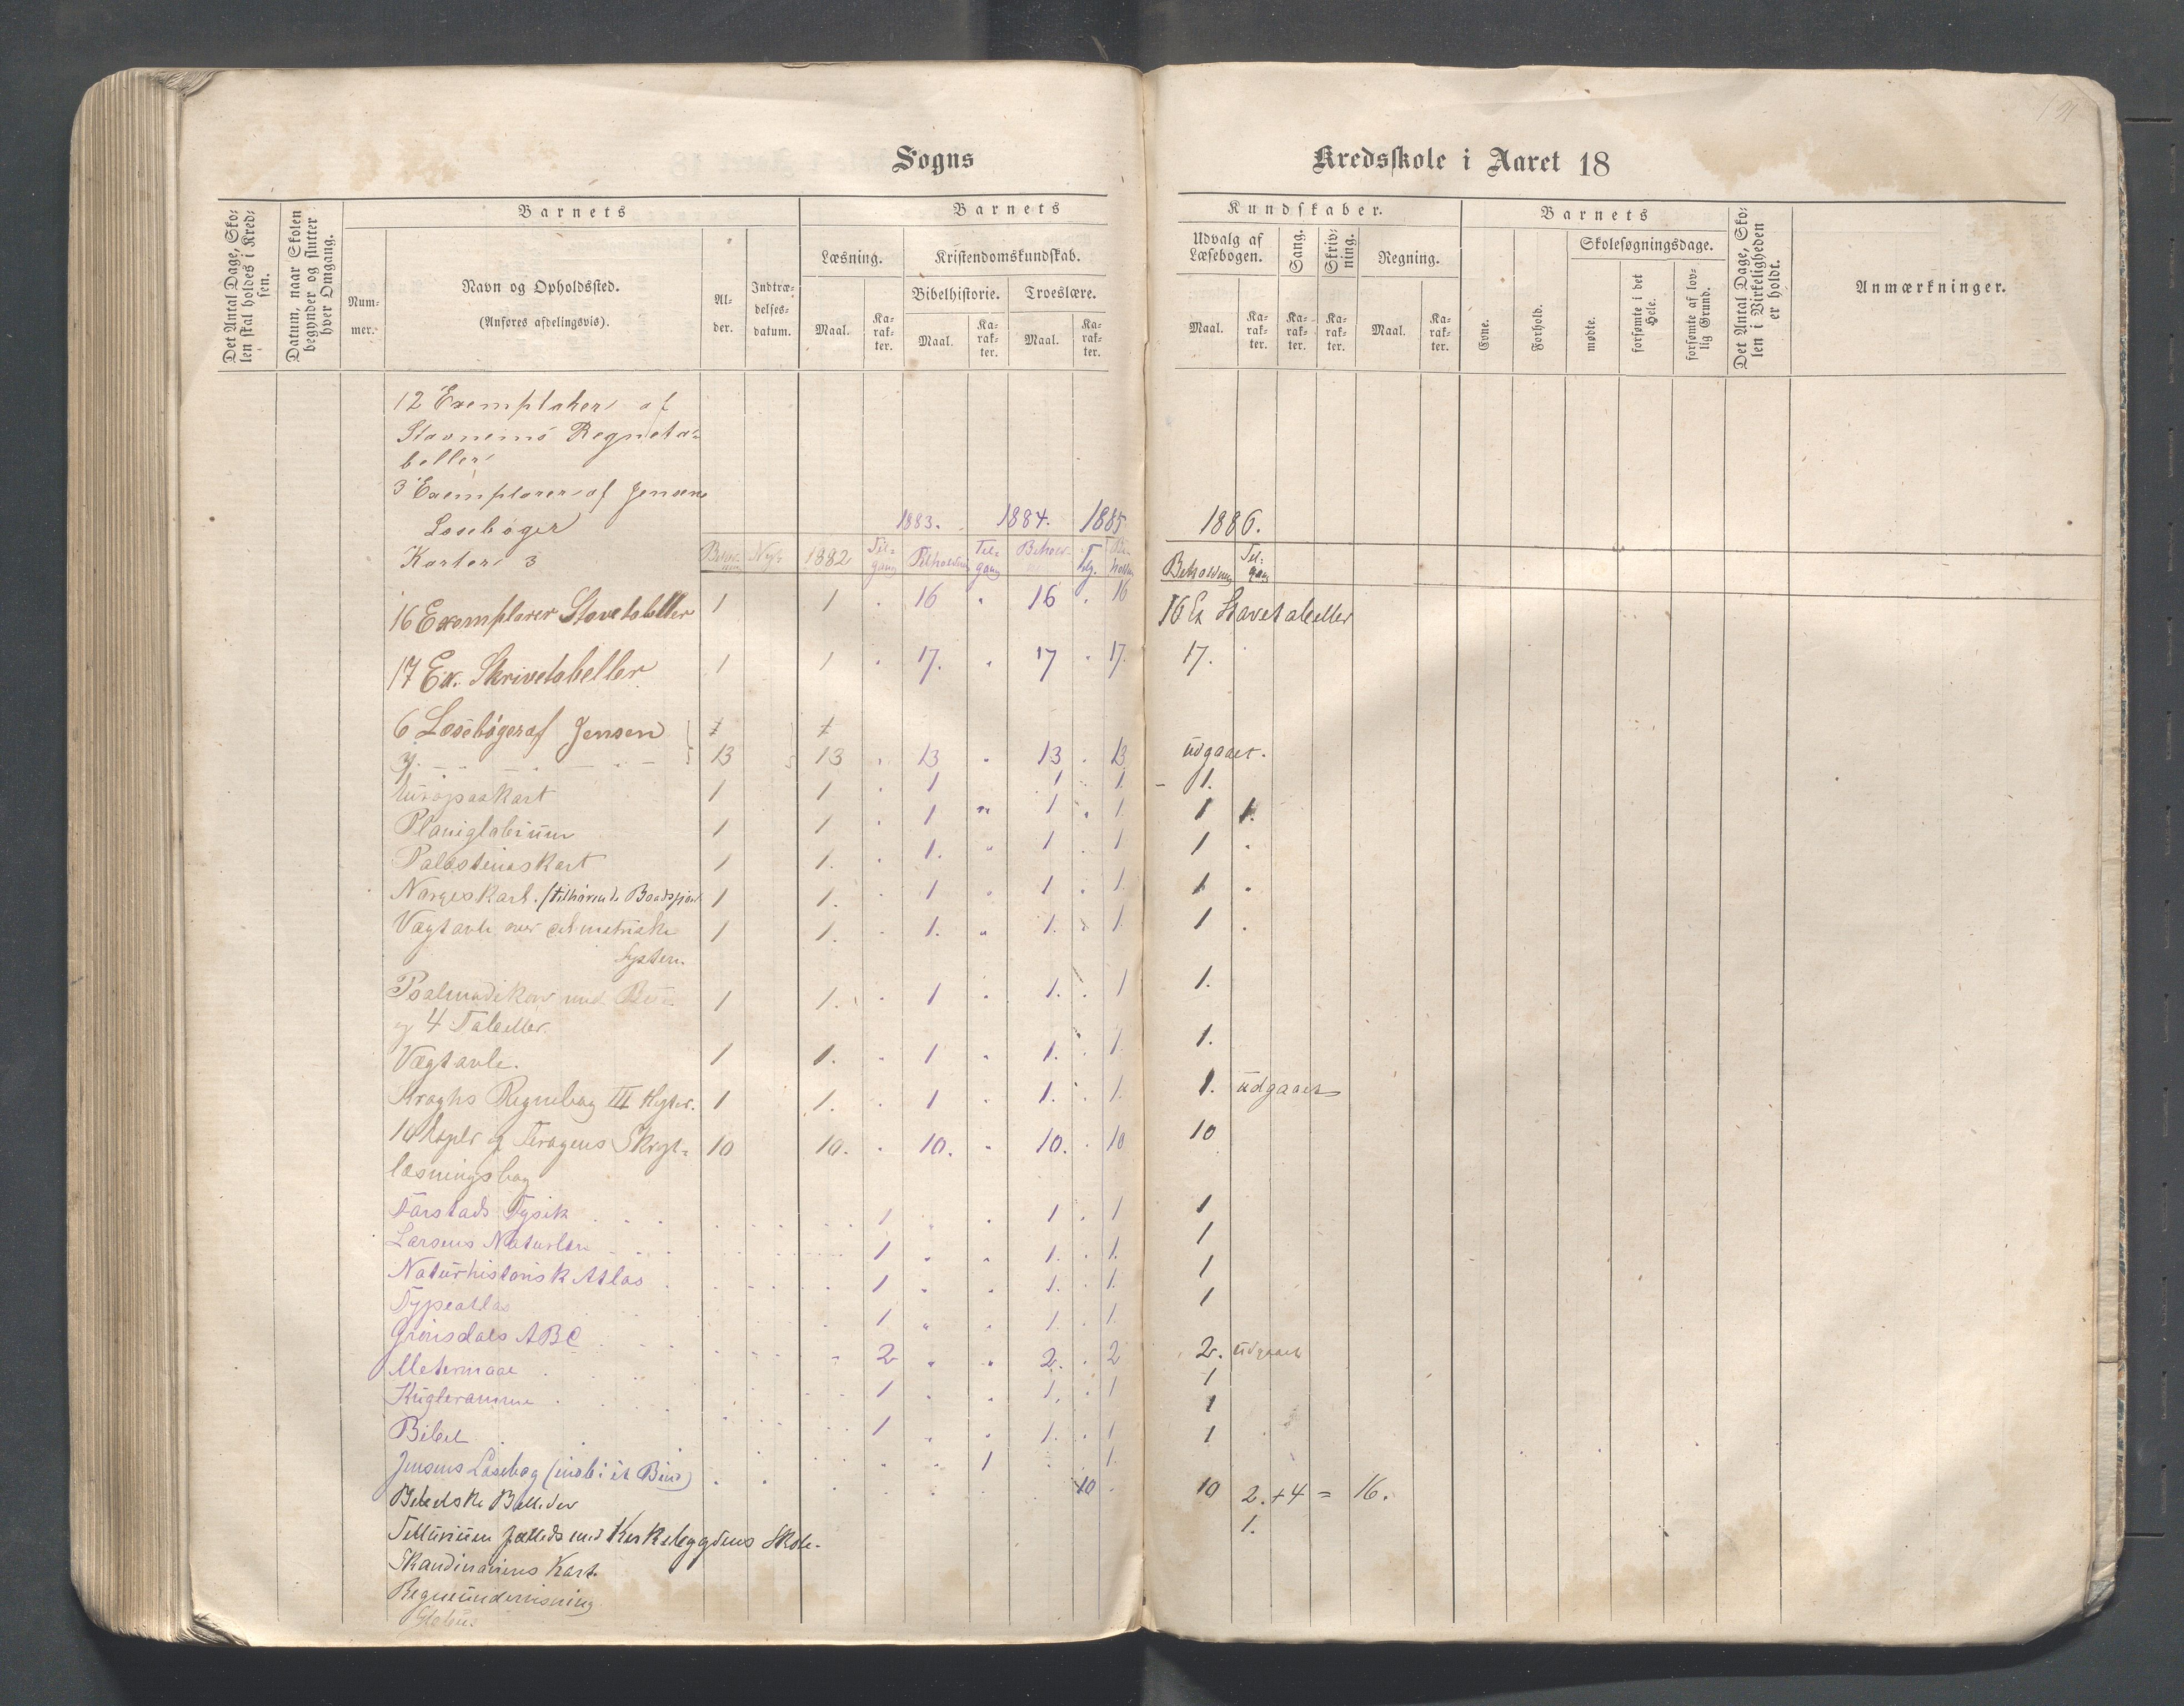 Sogns
Kredsskole i Aaret 18
Det Antal Dage, Skolen skal holdes i Kredsen.
Datum, naar Skolen begynder og slutter hver Omgang.
Barnets
Nummer.
Navn og Opholdssted.
(Anføres afdelingsvis).
Alder.
Indtrædelsesdatum.
Barnets
Læsning.
Kristendomskundskab.
Bibelhistorie.
Troeslære.
Maal.
Karakter.
Maal.
Karakter.
Maal.
Karakter.
Kundskaber.
Udvalg af Læsebogen.
Sang.
Skrivning.
Regning.
Maal.
Karakter.
Karakter.
Karakter.
Maal.
Karakter.
Barnets
Evne.
Forhold.
Skolesøgningsdage.
mødte.
forsømte i det Hele.
forsømte af lovlig Grund.
Det Antal Dage, Skolen i Virkeligheden er holdt.
Anmærkninger.
12 Exemplarer af
Regneta=
beller
3 Exemplarer af Jensens
Læsebøger
1883. 1884. 1885 1886.
Karter 3 1882 Til=gang Tilgang Behold. Tilg. Beholdning Tilgang
16 Exemplarer Stavetabeller 1 1 16 16 16 16 Ex Stavetabeller
17 Ex. Skrivetabeller 1 1 17. 17 17. 17.
6 Læsebøger af Jensen
7 13 13 13 13 13 udgaaet.
Europaakart 1 1 1 1 1. 1.
Planiglobium 1 1 1 1 1. 1 1.
Palæstinaskart 1 1. 1. 1 1 1
Norgeskart. (tilhørende 1 1. 1 1 1 1
Vægtavle over det metriske 1 1. 1. 1. 1 1
System.
Psalmodikon med Bue 1 1. 1 1. 1 1.
og 4 Tabeller.
Vægtavle. 1 1. 1 1. 1. 1.
Kroghs Regnebog III Hefter. 1 1. 1 1. 1. 1. udgaaet
10 Expl. af Skrift= 10 10. 10. 10. 10 10
læsningsbog
Tarstads Fysik 1 1 1 1
Larsens Naturlære 1 1. 1. 1
Naturhistorisk Atlas 1 1. 1. 1
Typeatlas 1 1. 1. 1
Grønsdals ABC 2 2. 2 2. udgaaet
Metermaal 1 1. 1 1
Kugleramme 1 1. 1 1
Bibel 1 1. 1
Jensens Læsebog (indb. i et Bind) 10 10 2. + 4 = 16.
Bibelske Billeder 1.
Tellurium fælleds med Kirkebygdens Skole.
Skandinaviens Kart.
Regneundervisning
Globus